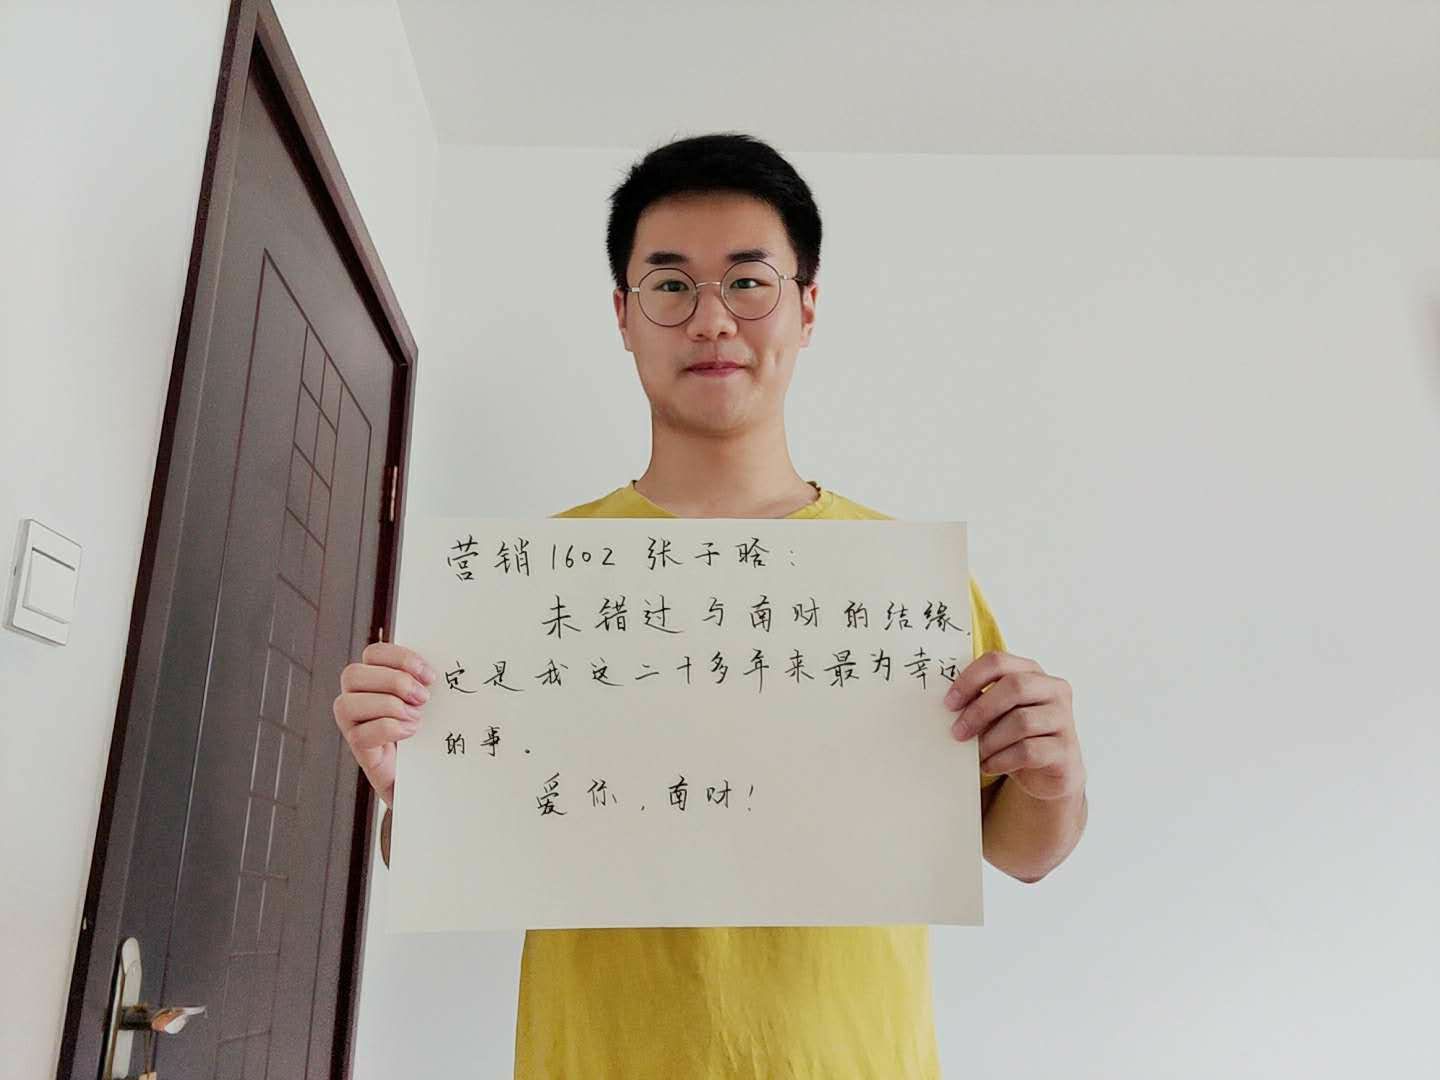 营销1602 张子晗：
未错过与南财的结缘，
定是我这二十多年来最为幸运
的事。
爱你，南财！